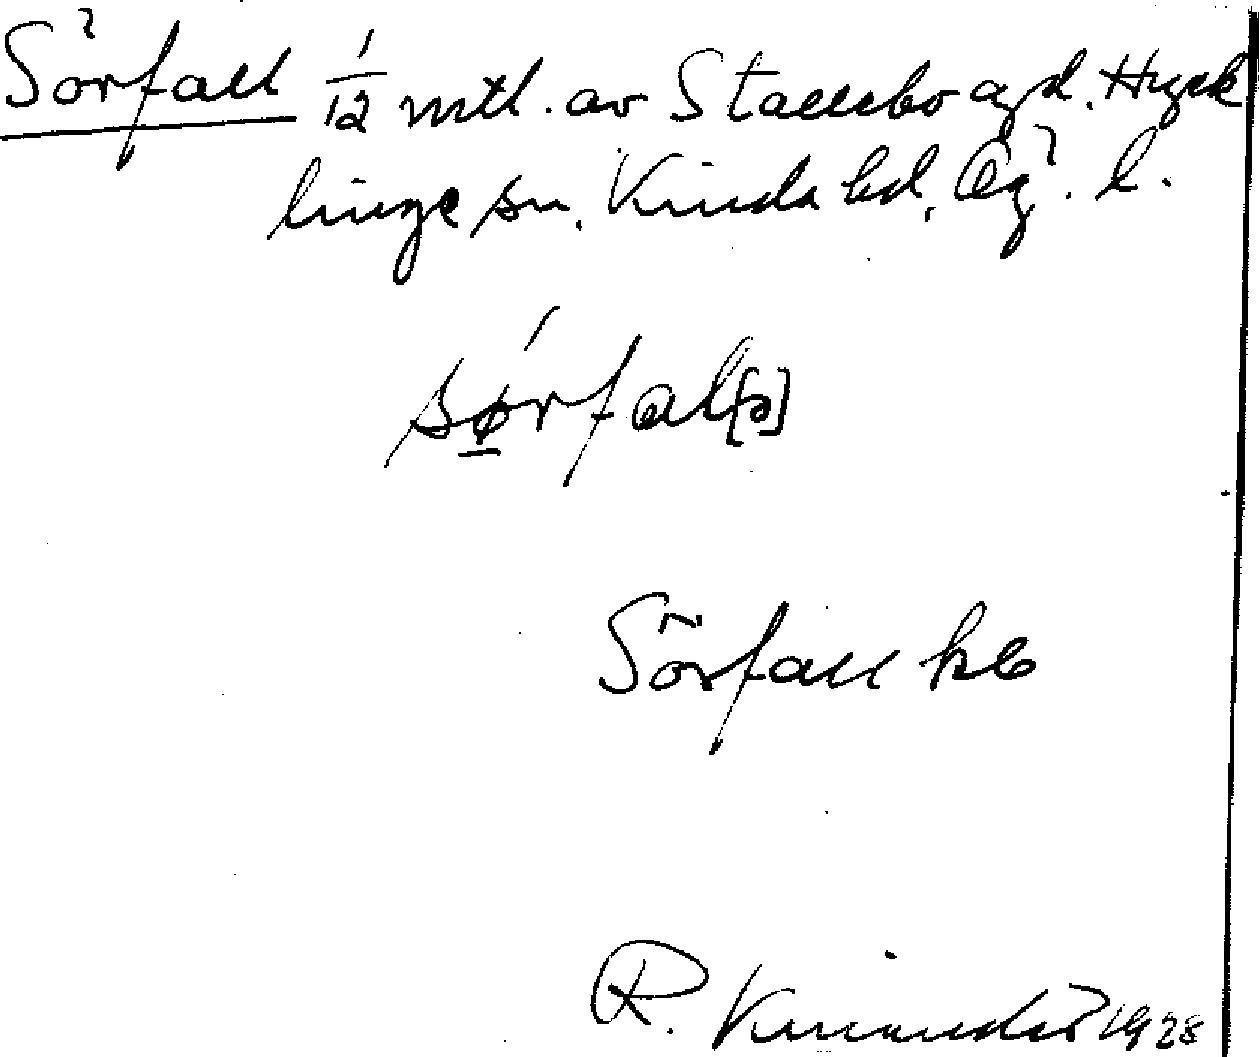 Sörfall 1/12 mtl. av Stallebo ägd. Hyck
linge sn. Kinda hd. Ög. l.
sørfal[ə]
Sörfall kb
R. Kinander 1928